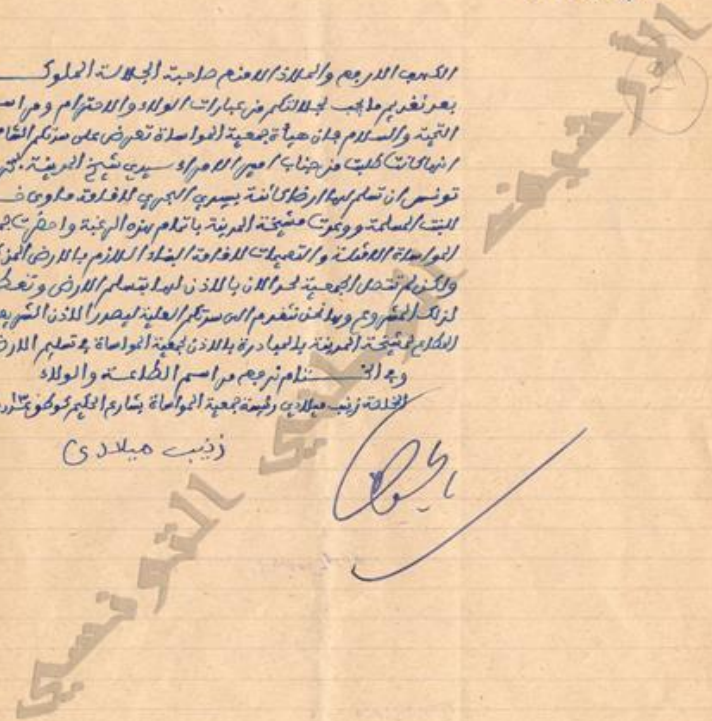 الكهف الارحم والملاذ الافخم صاحبة الجلالة الملوك
بعد تقديم ما يجب لجلالتكم من عبارات الولاء والاحترام ومراسـ
التحية والسلام فان هيأة جمعية المواساة تعرض على سدتكم
انها كانت طلبت من جناب امير الامراء سيدي شيخ المدينة
تونس ان تسلم لها ارضا كائنة بسيدي البحري لاقامة ماوى
للبنت المسلمة ووعدت مشيخة المدينة باتمام هذه الرغبة واحضرت
المواساة الامثلة والتصميمات لاقامة البناء اللازم بالارض
ولكن لم تتصل الجمعية لحد الان بالاذن لها بتسلم الارض
لذلك المشروع وها نحن نتقدم الى سدتكم العلية ليصدر الاذن
المطاع لمشيخة المدينة بالمبادرة بالاذن لجمعية المواساة بتسليم
وفي الختام نرجو مراسم الطاعة والولاء
زينب ميلادي رئيسة جمعية المواساة بشارع
زينب ميلادي
الأرشيف الوطني التونسي